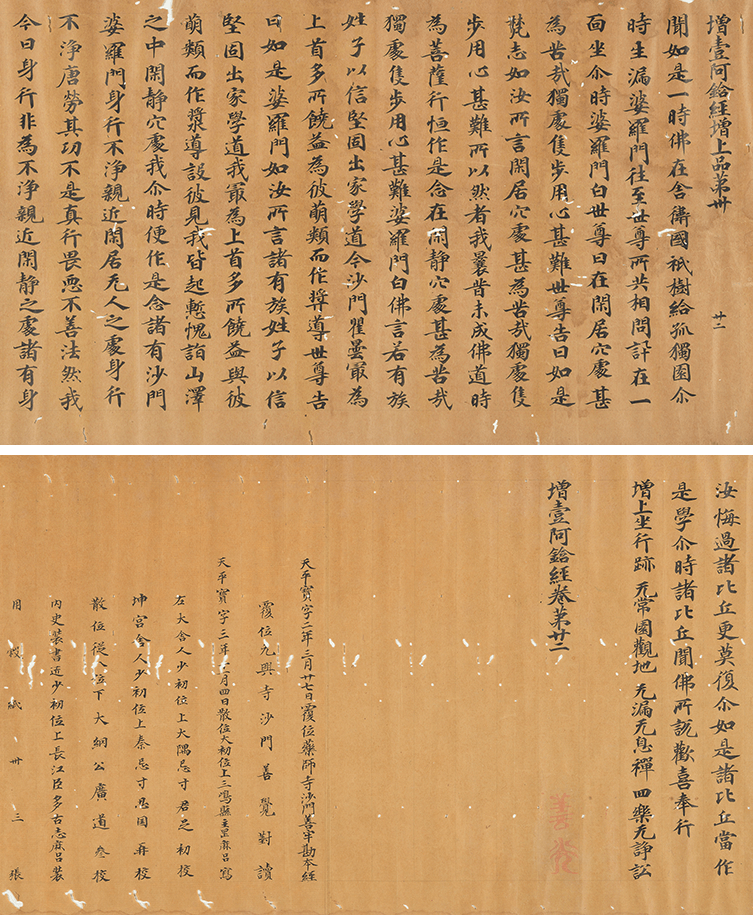 增壹阿鋡經增上品第卅 廿二
聞如是一時佛在舍衛國祇樹給孤獨園尒
時生漏婆羅門往至世尊所共相問訊在一
面坐尒時婆羅門白世尊曰在閑居穴處甚
為苦㢤獨處隻步用心甚難世尊告曰如是
梵志如汝所言閑居穴處甚為苦㢤獨處隻
步用心甚難所以然者我曩昔未成佛道時
為菩薩行恒作是念在閑静穴處甚為苦㢤
獨處隻步用心甚難婆羅門白佛言若有族
姓子以信堅固出家學道今沙門瞿曇冣為
上首多所饒益為彼萌類而作奬導世尊告
曰如是婆羅門如汝所言諸有族姓子以信
堅固出家學道我冣為上首多所饒益與彼
萌類而作奬導設彼見我皆起慙愧詣山澤
之中閑静穴處我尒時便作是念諸有沙門
婆羅門身行不浄親近閑居无人之處身行
不浄唐勞其功不是真行畏悪不善法然我
今日身行非為不浄親近閑静之處諸有身
汝悔過諸比丘更莫復尒如是諸比丘當作
是學尒時諸比丘聞佛所說歡喜奉行
增上坐行跡 无常園觀地 无漏无息禪 四樂无諍訟
增壹阿鋡經卷第廿二
善光
天平寶字二年三月廿七日覆位藥師寺沙門善牢勘本經
覆位九興寺沙門善覺對讀
天平寶字三年 月四日散位大初位上三嶋縣主里麻呂寫
左大舍人少初位上大隅忌寸君足初校
坤宮舍人少初位上秦忌寸忍國再校
散位從八位下大綱公廣道叅校
內史裝書匠少初位上長江臣多古志麻呂裝
用穀紙卅三張